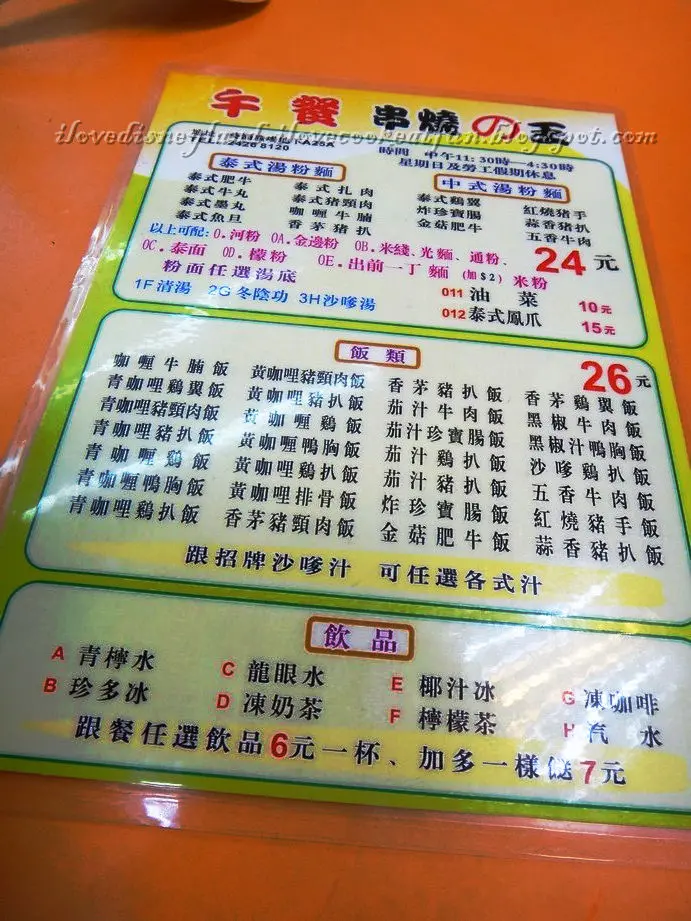 午餐 串燒の王
ilovedisneyland-ilovecookeatfun.blogspot.com
2426 8120
時間 中午11:30時—4:30時
星期日及勞工假期休息
泰式湯粉麵
泰式肥牛 泰式扎肉
泰式牛丸 泰式豬頸肉
泰式墨丸 咖喱牛腩
泰式魚旦 香茅豬扒
中式湯粉麵
泰式鷄翼 紅燒豬手
炸珍寶腸 蒜香豬扒
金菇肥牛 五香牛肉
以上可配: O.河粉 OA.金邊粉 OB.米綫、光麵、通粉、
OC.泰面 OD.檬粉 OE.出前一丁麵(加$2)米粉
24元
粉面任選湯底
1F清湯 2G冬陰功 3H沙嗲湯
011 油菜 10元
012 泰式鳳爪 15元
飯類
26元
咖喱牛腩飯 黃咖哩豬頸肉飯 香茅豬扒飯 香茅鷄翼飯
青咖哩鷄翼飯 黃咖哩豬扒飯 茄汁牛肉飯 黑椒牛肉飯
青咖哩豬頸肉飯 黃咖喱鷄飯 茄汁珍寶腸飯 黑椒汁鴨胸飯
青咖哩豬扒飯 黃咖哩鴨胸飯 茄汁鷄扒飯 沙嗲鷄扒飯
青咖喱鷄飯 黃咖哩鷄扒飯 茄汁豬扒飯 五香牛肉飯
青咖喱鴨胸飯 黃咖哩排骨飯 炸珍寶腸飯 紅燒豬手飯
青咖哩鷄扒飯 香茅豬頸肉飯 金菇肥牛飯 蒜香豬扒飯
跟招牌沙嗲汁 可任選各式汁
飲品
A 青檸水 C 龍眼水 E 椰汁冰 G 凍咖啡
B 珍多冰 D 凍奶茶 F 檸檬茶 H 汽水
跟餐任選飲品6元一杯、加多一樣餸7元